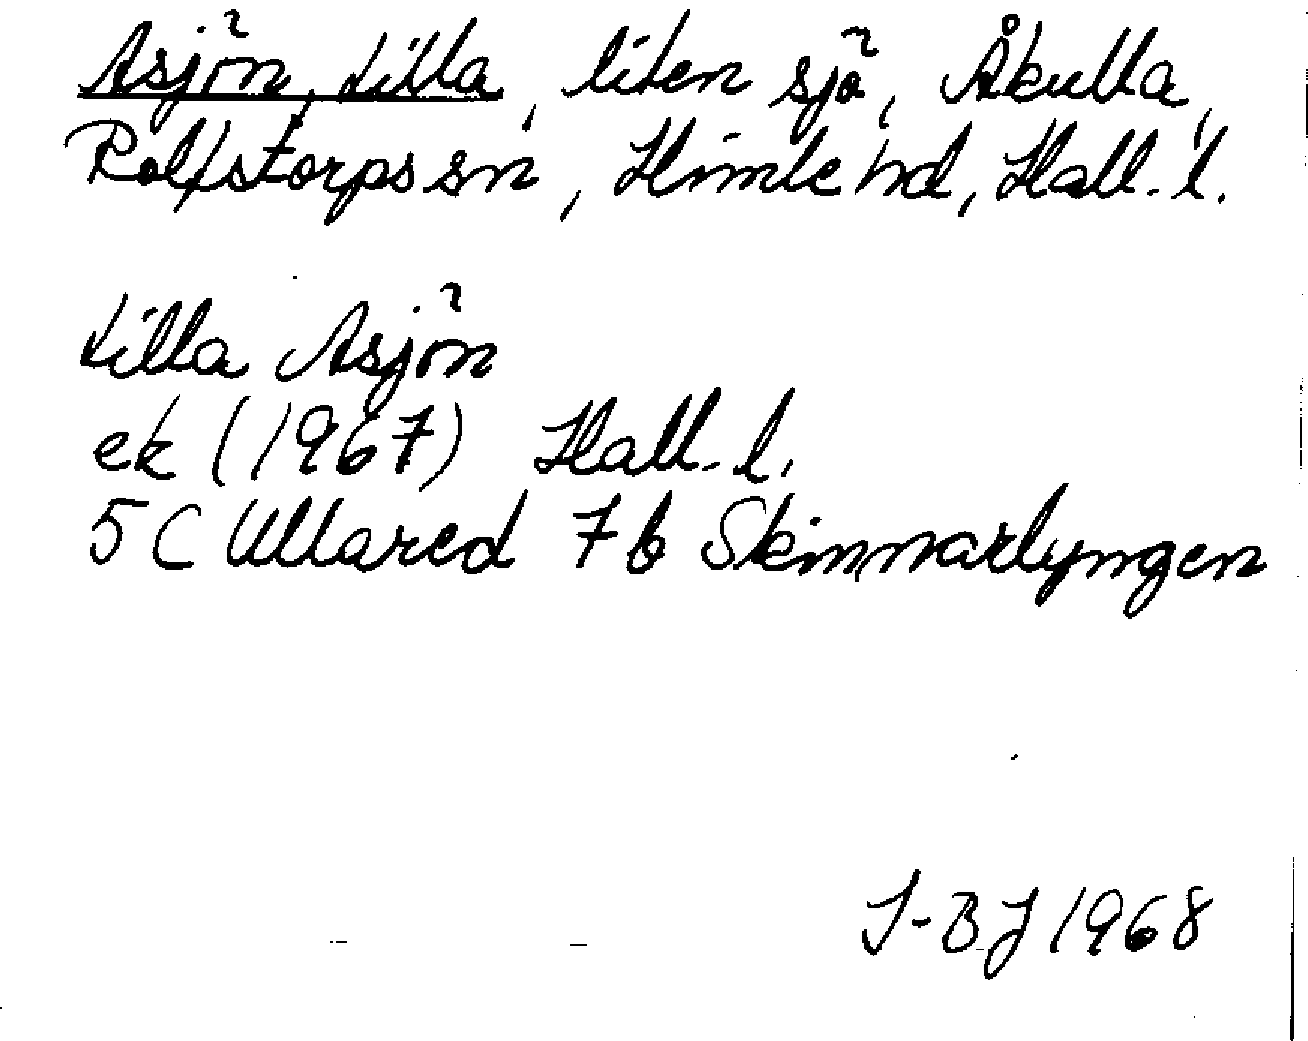 Asjön, Lilla, liten sjö, Åkulla,
Rolfstorps sn, Himle hd, Hall. l.
Lilla Asjön
ek (1967) Hall. l.
5 C Ullared 7 b Skinnarlyngen
I-BJ 1968